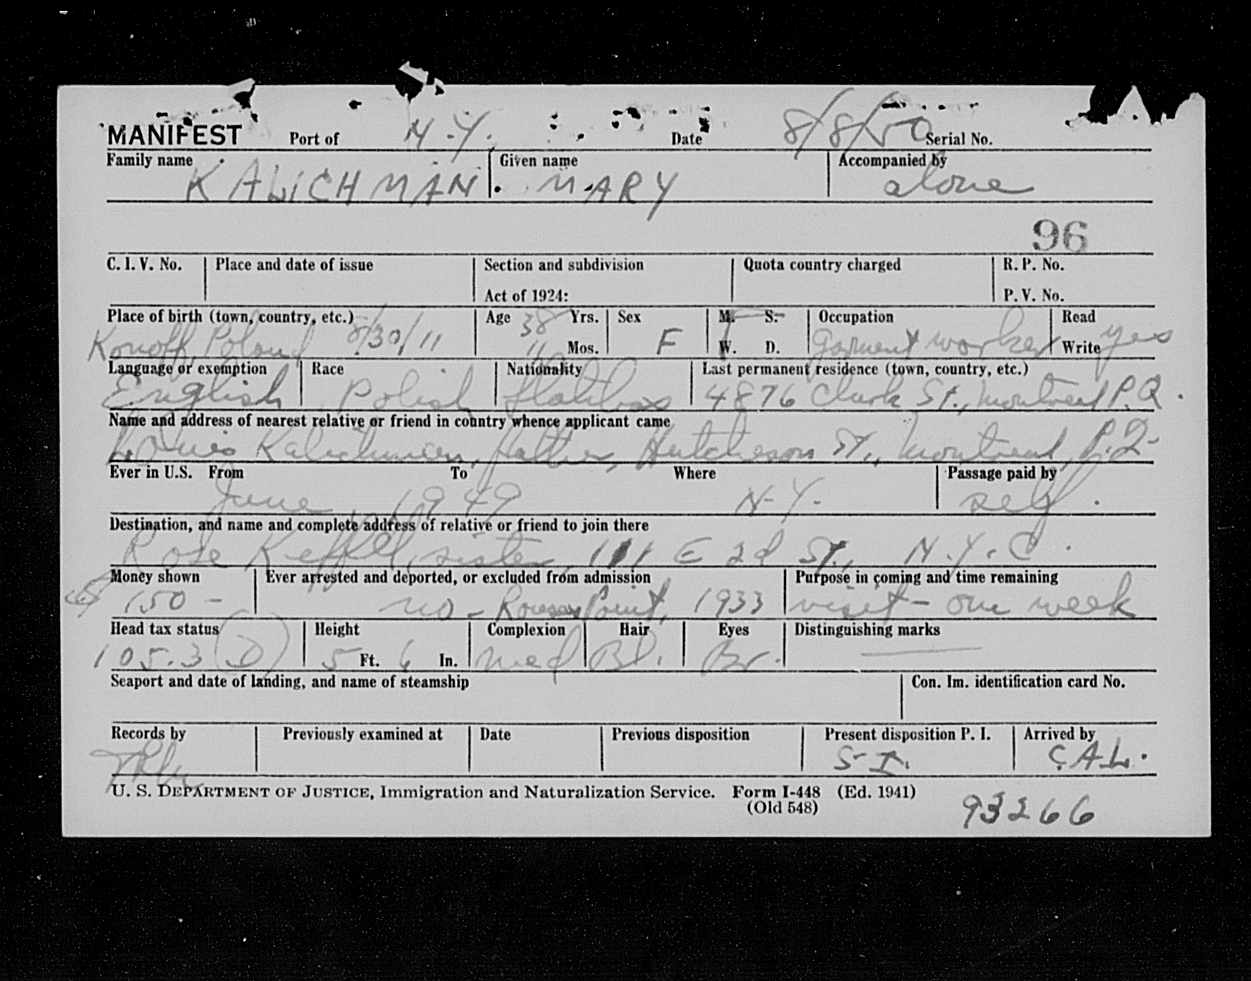 MANIFEST Port of N.Y. Date 8/8/50 Serial No.
Family name Given name Accompanied by
KALICHMAN. MARY alone
96
C. I. V. No. Place and date of issue Section and subdivision Quota country charged R. P. No.
Act of 1924: P. V. No.
Place of birth (town, country, etc.) Age 38 Yrs. Sex M. S. Occupation Read
Poland 8/30/11 11 Mos. F W. D. Garment worker Write yes
Language or exemption Race Nationality Last permanent residence (town, country, etc.)
English Polish 4876 Clark St., Montreal P.Q.
Name and address of nearest relative or friend in country whence applicant came
Louis Kalichman, father, Hutcheson St., Montreal, P.Q.
Ever in U.S. From To Where Passage paid by
June 1949 N.Y. self.
Destination, and name and complete address of relative or friend to join there
Rose Keffel, sister, 111 E 2d St., N.Y.C.
Money shown Ever arrested and deported, or excluded from admission Purpose in coming and time remaining
150 - no - Rouses Point, 1933 visit - one week
Head tax status Height Complexion Hair Eyes Distinguishing marks
105.3 (D) 5 Ft. 6 In. Med Bl. Br.
Seaport and date of landing, and name of steamship Con. Im. identification card No.
Records by Previously examined at Date Previous disposition Present disposition P. I. Arrived by
S-I. C.A.L.
U. S. DEPARTMENT OF JUSTICE, Immigration and Naturalization Service. Form I-448 (Ed. 1941)
(Old 548)
93266